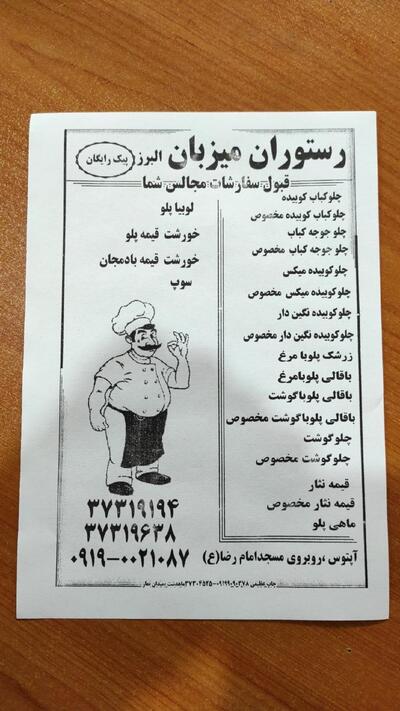 رستوران میزبان البرز پیک رایگان
قبول سفارشات مجالس شما
چلوکباب کوبیده
چلوکباب کوبیده مخصوص
چلو جوجه کباب
چلو جوجه کباب مخصوص
چلوکوبیده میکس
چلوکوبیده میکس مخصوص
چلوکوبیده نگین دار
چلوکوبیده نگین دار مخصوص
زرشک پلوبا مرغ
باقالی پلوبامرغ
باقالی پلوباگوشت
باقالی پلوباگوشت مخصوص
چلوگوشت
چلوگوشت مخصوص
قیمه نثار
قیمه نثار مخصوص
ماهی پلو
لوبیا پلو
خورشت قیمه پلو
خورشت قیمه بادمجان
سوپ
۳۷۳۱۹۱۹۴
۳۷۳۱۹۶۳۸
۰۹۱۹-۰۰۲۱۰۸۷
آبنوس ،روبروی مسجدامام رضا(ع)
چاپ عظیمی ۰۹۱۹۹۰۹۰۳۷۸-۳۷۳۰۴۵۲۵